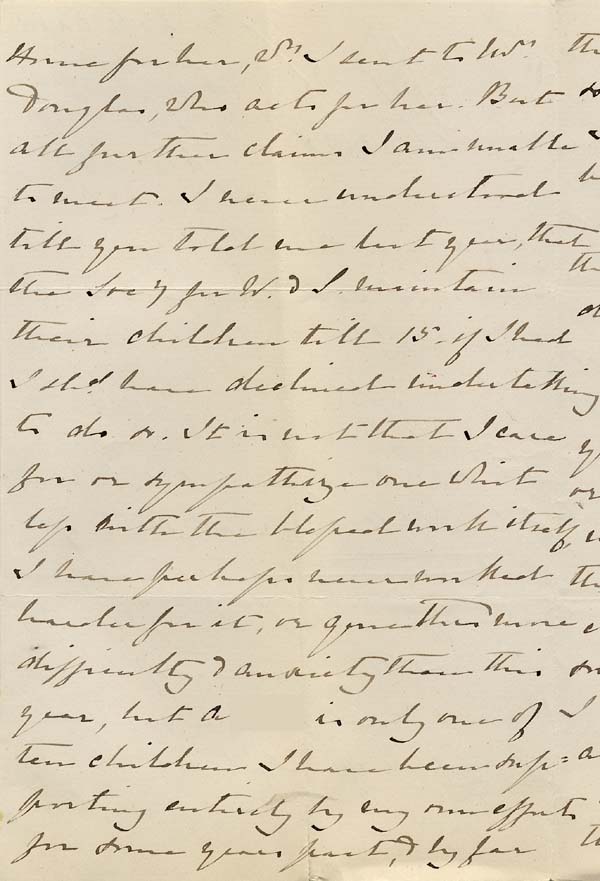 Home for her, wh. I sent to Mrs.
Douglas, who acts for her. But
all further claims I am unable
to meet. I never understood
till you told me last year, that
the Socy for W. & S. maintain
their children till 15 - if I had
I shd. have declined undertaking
to do so. It is not that I care
for or sympathize one whit
less with the blessed work itself,
I have perhaps never worked
harder for it, or gone thro' more
difficulty & anxiety than this
year, but A is only one of
ten children I have been sup=
porting entirely by my own efforts
for some years past, & by far